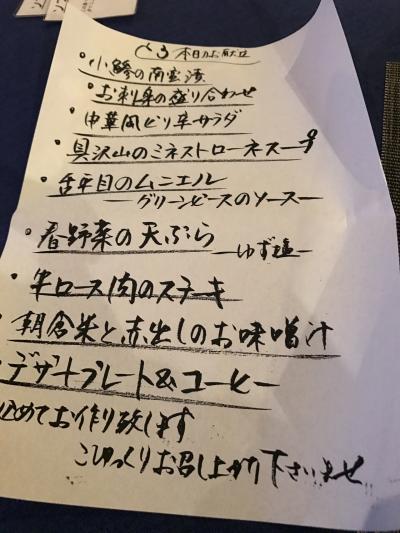 本日のお献立
・小鯵の南蛮漬
・お刺身の盛り合わせ
・中華風ピリ辛サラダ
・具沢山のミネストローネスープ
・舌平目のムニエル
―グリーンピースのソース―
・春野菜の天ぷら
―ゆず塩―
・牛ロース肉のステーキ
・朝倉米と赤出しのお味噌汁
・デザートプレート&コーヒー
込めてお作り致します
ごゆっくりお召し上がり下さいませ